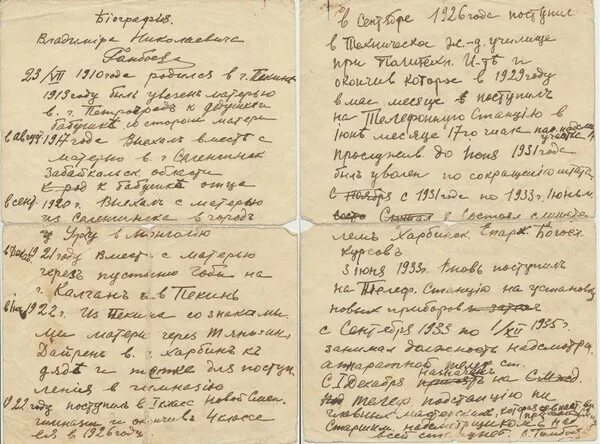 Біографія
Владиміра Николаевича
Гамбоева
23/VII 1910 года родился в г. Пекин
1913 году был увезен матерью
в г. Петроград к дедушки
бабушке со стороны матери
в август 1917 года Выехал вместе с
матерью в г. Селенгинск
Забайкальск области
к бабушке отца
в сент. 1920 г. Выехал с матерью
из Селенгинска в город
Ургу в Монголію
1921 году Вмест с матерью
через пустыню Гоби на
г. Калган и в Пекинъ
1922 г. Из Пекина со знакомы-
ми матери через Тяньзин,
Дайрень в г. Харбин къ
дяде и тетке для поступ
ления в гимназию
1922 году поступил в I класс Новой Смен.
гимназии и окончив 4 класса
ея в 1926 году.
в Сентябре 1926 года поступил
в Техническое ж-д. училище
при Политехн. И-те и
окончив которое в 1929 году
в мае месяце поступил
на Телефонную Станцію в
Іюне месяце 17го числа
прослужив до Іюня 1931 года
был уволен по сокращению штата,
с Ноября с 1931 года по 1933 г. Іюнь м.
состоял слушате
лем Харбинск. Епарх. Богосл.
Курсов
3 июня 1933 г. Вновь поступил
на Телеф. Станцію на установку
новых приборов
с Сентября 1933 по 1/XII 1935 г.
занимал должность надсмотр.
аппаратной телеф. ст.
С 1 Декабря назначен на
телеф подстанцію при
главных мастерских, которая
Старшим надсмотрщиком
В. Гамбоев